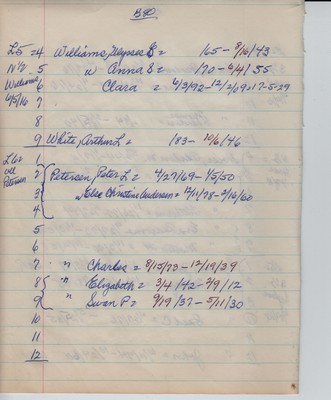 B80
L5 = 4 Williams, Ulysses S = 165 - 8/16/43
N 1/2 5 " Anna S = 170 - 6/4/55
Williams 6 Clara = 4/3/92 - 12/2/69 = 17-5-29
4/5/16 7
8
9 White, Arthur L = 183 - 10/6/46
L6 = 1
all 2 Petersen, Peter L = 4/27/69 - 4/5/50
Petersen 3 " Else Christine Andersen = 12/11/78 - 2/16/60
4
5
6
7 " Charles = 8/15/73 - 12/19/39
8 " Elizabeth = 3/4/42 - 2/9/12
9 " Swan P = 9/19/37 - 5/11/30
10
11
12